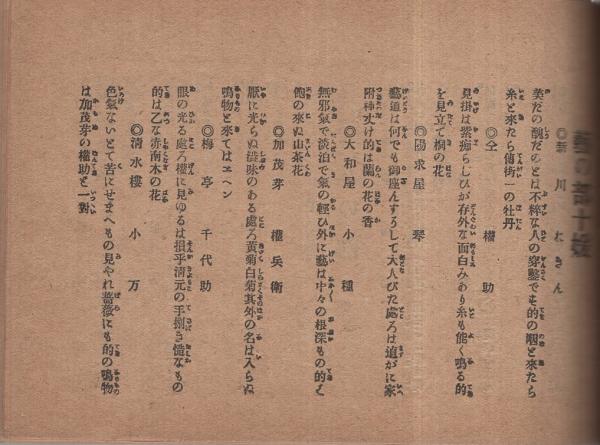 藝の部十媛
◎新川 おきん
美だの醜だのとは不粋な人の穿鑿でも的の咽と来たら
糸と来たら傳術一の牡丹
◎仝 權助
見掛は素痴らしひが存外な面白みあり糸も能く鳴る的
を見立て桐の花
◎陽求屋 琴
藝道は何でも御座んすうして大人びた處ろは追がに家
附神丈け的は蘭の花の香
◎大和屋 小種
無邪氣で淡泊で氣の輕ひ外に藝は中々の根深もの的く
他の來ぬ山茶花
◎加茂芽 權兵衛
厭に光らぬ澁味のある處ろ黄菊白菊其外の名は入らぬ
鳴物と來てはヱヘン
◎梅亭 千代助
眼の光る處ろ權に見ゆるは損乎清元の手捌き憎なもの
的は乙な赤南木の花
◎清水樓 小万
色氣ないとて苦にせまへもの見やれ薔薇にも的の鳴物
は加茂芽の權助と一對